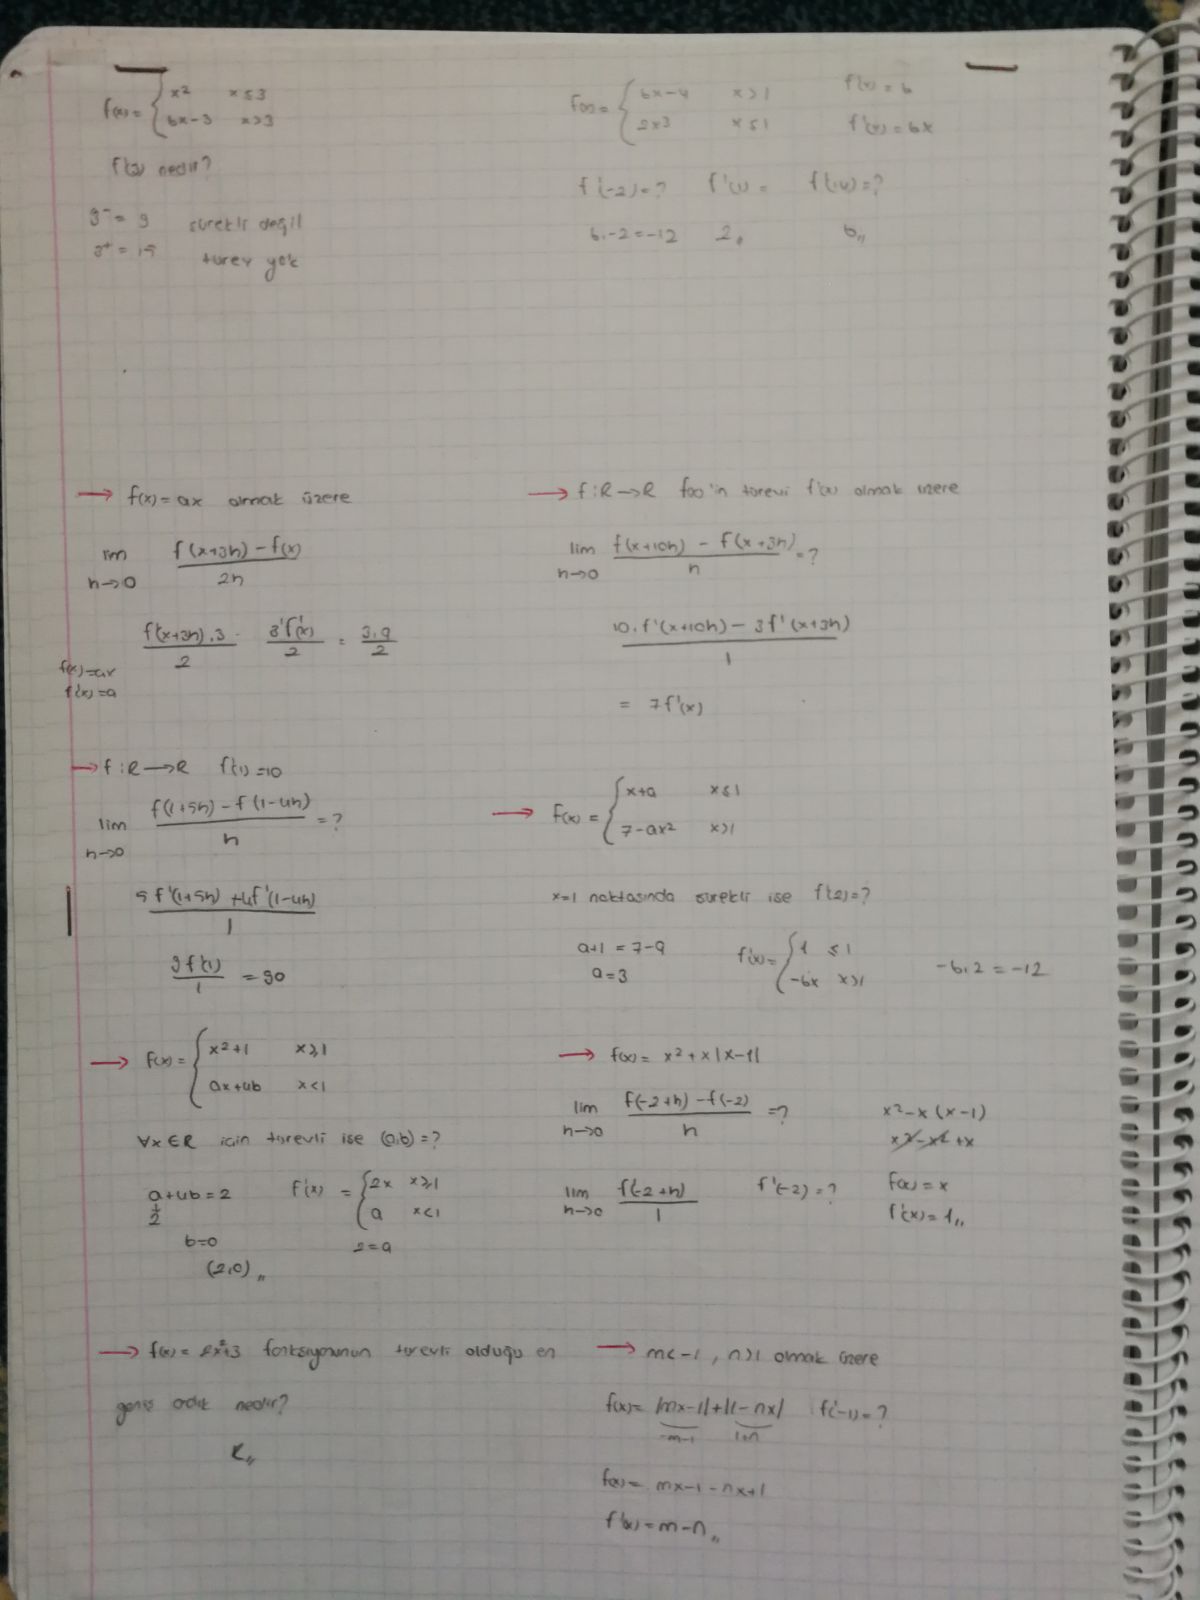 f(x) = { x² x ≤ 3
6x-3 x > 3
f'(3) nedir?
3⁻ = 9 sürekli değil
3⁺ = 15 türev yok
f(x) = { 6x-4 x > 1 f'(x) = 6
2x3 x ≤ 1 f'(x) = 6x
f'(-2) = ? f'(1) = f'(14) = ?
6.-2 = -12 2,, 6,,
→ f(x) = ax olmak üzere
lim h→0 f(x+3h) - f(x) / 2h
f'(x+3h).3 / 2 3'f'(x) / 2 = 3.a / 2
f(x) = ax
f'(x) = a
→ f: R → R f(x)'in türevi f'(x) olmak üzere
lim h→0 f(x+10h) - f(x+3h) / h = ?
10.f'(x+10h) - 3f'(x+3h) / 1
= 7f'(x)
→ f: R → R f'(1) = 10
lim h→0 f(1+5h) - f(1-4h) / h = ?
5f'(1+5h) + 4f'(1-4h) / 1
9f'(1) / 1 = 90
→ f(x) = { x+a x ≤ 1
7-ax² x > 1
x=1 noktasında sürekli ise f'(2) = ?
a+1 = 7-a f'(x) = { 1 ≤ 1
a = 3 -6x x > 1 -6.2 = -12
→ f(x) = { x²+1 x ≥ 1
ax+4b x < 1
∀x ∈ R için türevli ise (a,b) = ?
a+4b = 2 f'(x) = { 2x x ≥ 1
2 a x < 1
b = 0 2 = a
(2,0),,
→ f(x) = x² + x|x-1|
lim h→0 f(-2+h) - f(-2) / h = ? x² - x(x-1)
x² - x² + x
lim h→0 f'(-2+h) / 1 f'(-2) = ? f(x) = x
f'(x) = 1,,
→ f(x) = 2x²+3 fonksiyonunun türevli olduğu en
geniş aralık nedir?
R,,
→ m < -1, n > 1 olmak üzere
f(x) = |mx-1| + |1-nx| f'(-1) = ?
-m-1 1+n
f(x) = mx-1-nx+1
f'(x) = m-n,,